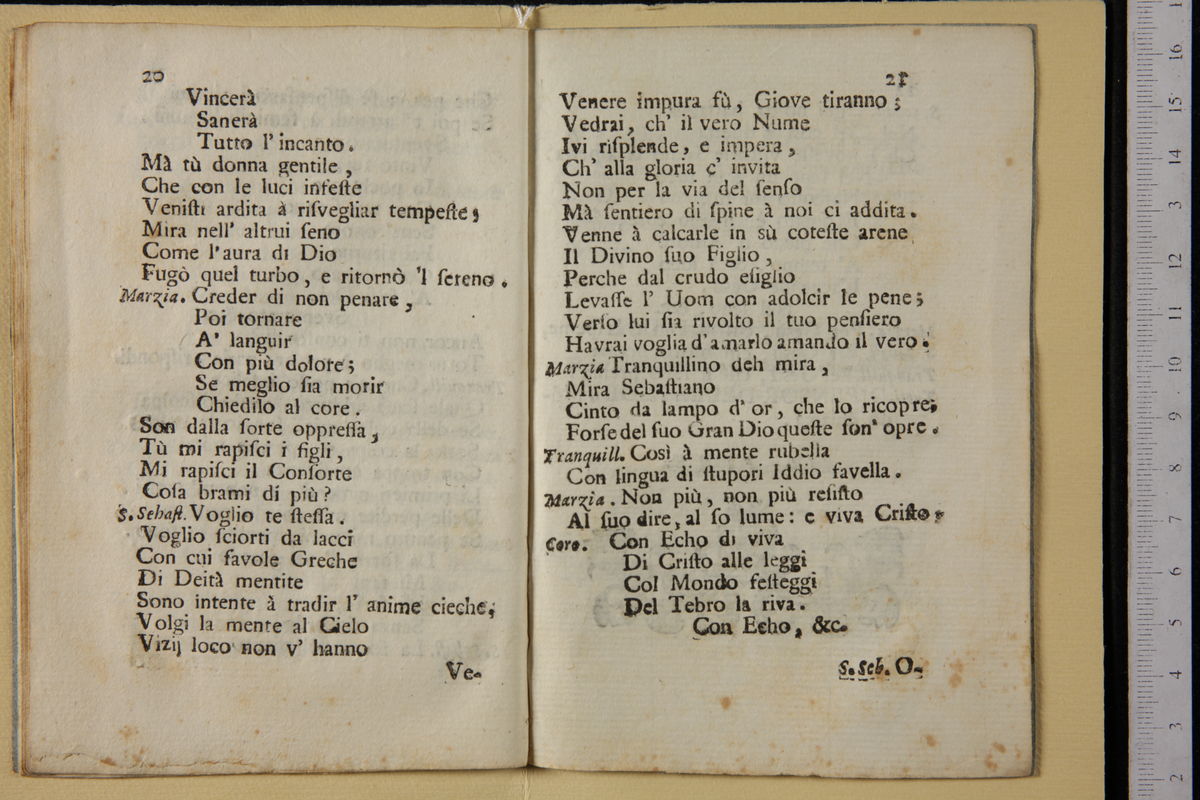 20
Vincerà
Sanerà
Tutto l' incanto.
Mà tù donna gentile,
Che con le luci infeste
Venisti ardita à risvegliar tempeste;
Mira nell' altrui seno
Come l'aura di Dio
Fugò quel turbo, e ritornò 'l sereno.
Marzia. Creder di non penare,
Poi tornare
A' languir
Con più dolore;
Se meglio sia morir
Chiedilo al core.
Son dalla sorte oppressa,
Tù mi rapisci i figli,
Mi rapisci il Consorte
Cosa brami di più?
S. Sebast. Voglio te stessa.
Voglio sciorti da lacci
Con cui favole Greche
Di Deità mentite
Sono intente à tradir l' anime cieche;
Volgi la mente al Cielo
Vizij loco non v' hanno
Ve-
21
Venere impura fù, Giove tiranno;
Vedrai, ch' il vero Nume
Ivi risplende, e impera,
Ch' alla gloria c' invita
Non per la via del senso
Mà sentiero di spine à noi ci addita.
Venne à calcarle in sù coteste arene
Il Divino suo Figlio,
Perche dal crudo esiglio
Levasse l' Uom con adolcir le pene;
Verso lui sia rivolto il tuo pensiero
Havrai voglia d'amarlo amando il vero.
Marzia Tranquillino deh mira,
Mira Sebastiano
Cinto da lampo d' or, che lo ricopre;
Forse del suo Gran Dio queste son' opre.
Tranquill. Così à mente rubella
Con lingua di stupori Iddio favella.
Marzia. Non più, non più resisto
Al suo dire, al so lume: e viva Cristo.
Coro. Con Echo di viva
Di Cristo alle leggi
Col Mondo festeggi
Del Tebro la riva.
Con Echo, &c.
S. Seb. O-
16
15
14
3
12
11
10
9
8
7
6
5
4
3
2